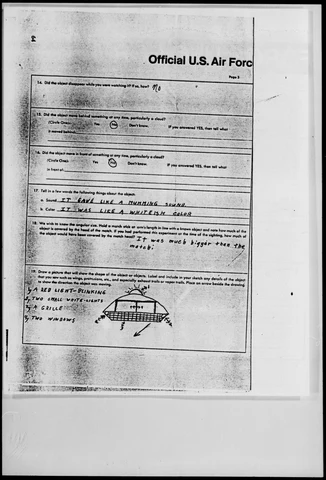 Official U.S. Air Forc
Page 3
14. Did the object disappear while you were watching it? If so, how? NO
15. Did the object move behind something at any time, particularly a cloud?
(Circle One): Yes No Don't know. If you answered YES, then tell what
it moved behind:
16. Did the object move in front of something at any time, particularly a cloud?
(Circle One): Yes No Don't know. If you answered YES, then tell what
in front of:
17. Tell in a few words the following things about the object:
a. Sound IT GAVE LIKE A HUMMING SOUND
b. Color IT WAS LIKE A WHITEISH COLOR
18. We wish to know the angular size. Hold a match stick at arm's length in line with a known object and note how much of the
object is covered by the head of the match. If you had performed this experiment at the time of the sighting, how much of
the object would have been covered by the match head? It was much bigger than the
match.
19. Draw a picture that will show the shape of the object or objects. Label and include in your sketch any details of the object
that you saw such as wings, protrusions, etc., and especially exhaust trails or vapor trails. Place an arrow beside the drawing
to show the direction the object was moving.
A RED LIGHT-BLINKING
TWO SMALL WHITE-LIGHTS
A GRILLE
TWO WINDOWS